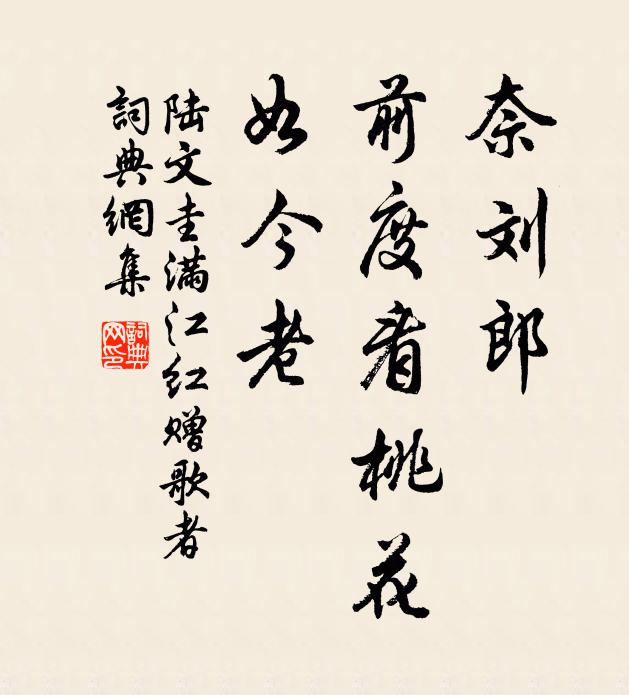 奈刘郎
前度看桃花
如今老
陆文圭满江红赠歌者
詞典網集
詞典网印